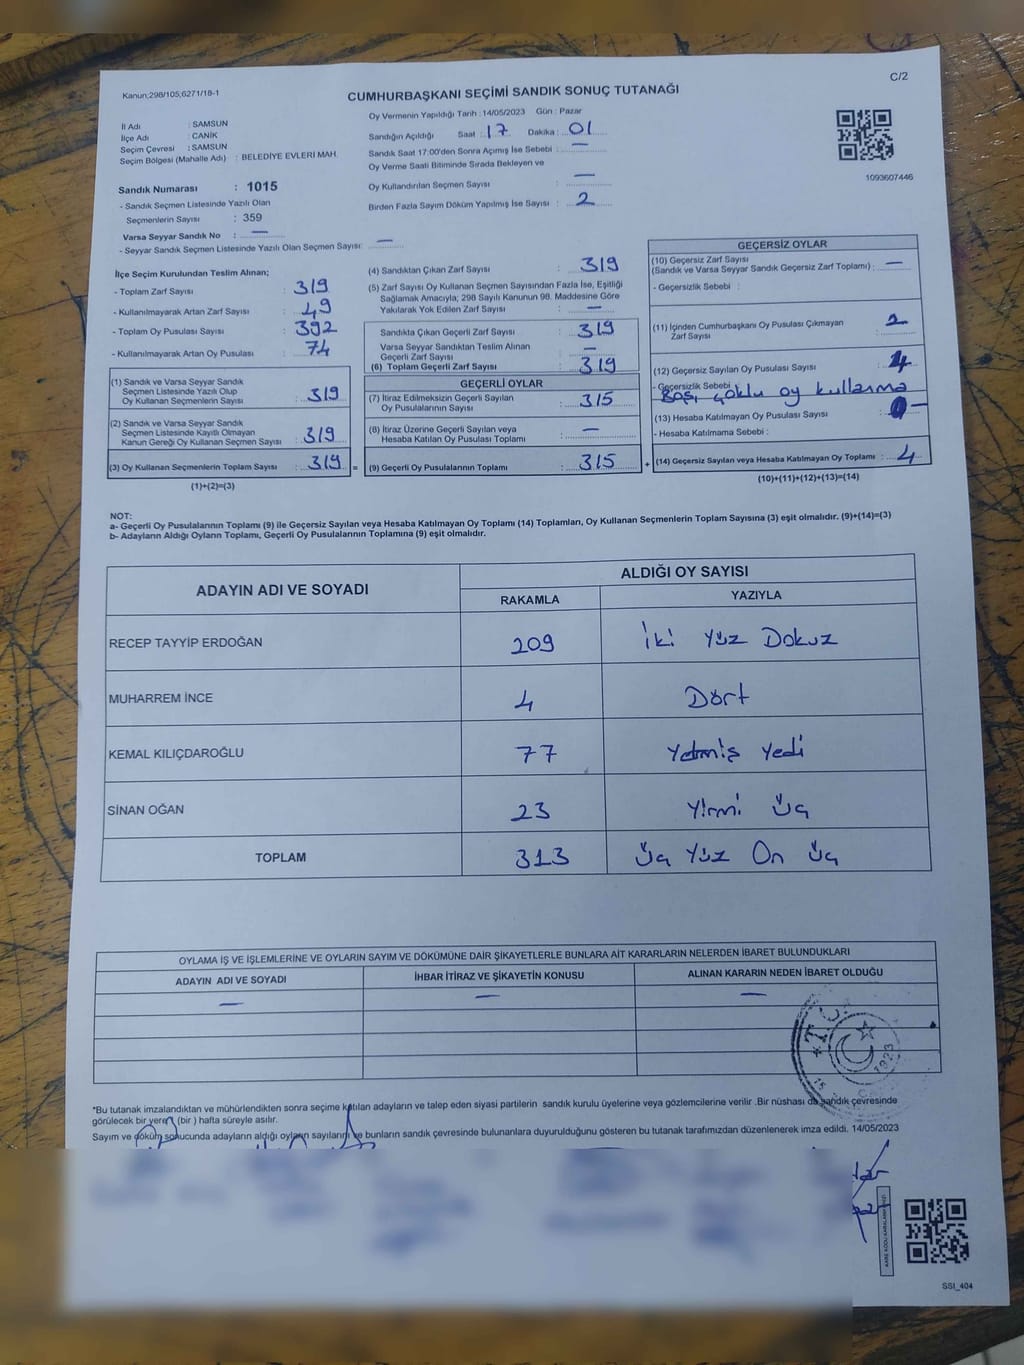 C/2
Kanun;298/105;6271/18-1
CUMHURBAŞKANI SEÇİMİ SANDIK SONUÇ TUTANAĞI
İl Adı : SAMSUN
İlçe Adı : CANİK
Seçim Çevresi : SAMSUN
Seçim Bölgesi (Mahalle Adı) : BELEDİYE EVLERİ MAH.
Sandık Numarası : 1015
- Sandık Seçmen Listesinde Yazılı Olan
Seçmenlerin Sayısı : 359
Varsa Seyyar Sandık No : —
- Seyyar Sandık Seçmen Listesinde Yazılı Olan Seçmen Sayısı : —
Oy Vermenin Yapıldığı Tarih : 14/05/2023 Gün : Pazar
Sandığın Açıldığı Saat : 17 Dakika : 01
Sandık Saat 17:00'den Sonra Açımış İse Sebebi : —
Oy Verme Saati Bitiminde Sırada Bekleyen ve
Oy Kullandırılan Seçmen Sayısı : —
Birden Fazla Sayım Döküm Yapılmış İse Sayısı : 2
1093607446
İlçe Seçim Kurulundan Teslim Alınan;
- Toplam Zarf Sayısı : 319
- Kullanılmayarak Artan Zarf Sayısı : 49
- Toplam Oy Pusulası Sayısı : 392
- Kullanılmayarak Artan Oy Pusulası : 74
(1) Sandık ve Varsa Seyyar Sandık
Seçmen Listesinde Yazılı Olup
Oy Kullanan Seçmenlerin Sayısı : 319
(2) Sandık ve Varsa Seyyar Sandık
Seçmen Listesinde Kayıtlı Olmayan
Kanun Gereği Oy Kullanan Seçmen Sayısı : 319
(3) Oy Kullanan Seçmenlerin Toplam Sayısı : 319 =
(1)+(2)=(3)
(4) Sandıktan Çıkan Zarf Sayısı : 319
(5) Zarf Sayısı Oy Kullanan Seçmen Sayısından Fazla İse, Eşitliği
Sağlamak Amacıyla; 298 Sayılı Kanunun 98. Maddesine Göre
Yakılarak Yok Edilen Zarf Sayısı : —
Sandıkta Çıkan Geçerli Zarf Sayısı : 319
Varsa Seyyar Sandıktan Teslim Alınan
Geçerli Zarf Sayısı : —
(6) Toplam Geçerli Zarf Sayısı : 319
GEÇERLİ OYLAR
(7) İtiraz Edilmeksizin Geçerli Sayılan
Oy Pusulalarının Sayısı : 315
(8) İtiraz Üzerine Geçerli Sayılan veya
Hesaba Katılan Oy Pusulası Toplamı : —
(9) Geçerli Oy Pusulalarının Toplamı : 315 +
GEÇERSİZ OYLAR
(10) Geçersiz Zarf Sayısı
(Sandık ve Varsa Seyyar Sandık Geçersiz Zarf Toplamı) : —
- Geçersizlik Sebebi :
(11) İçinden Cumhurbaşkanı Oy Pusulası Çıkmayan
Zarf Sayısı : 2
(12) Geçersiz Sayılan Oy Pusulası Sayısı : 4
- Geçersizlik Sebebi : Boş, çoklu oy kullanma
(13) Hesaba Katılmayan Oy Pusulası Sayısı : 0 —
- Hesaba Katılmama Sebebi :
(14) Geçersiz Sayılan veya Hesaba Katılmayan Oy Toplamı : 4
(10)+(11)+(12)+(13)=(14)
NOT:
a- Geçerli Oy Pusulalarının Toplamı (9) ile Geçersiz Sayılan veya Hesaba Katılmayan Oy Toplamı (14) Toplamları, Oy Kullanan Seçmenlerin Toplam Sayısına (3) eşit olmalıdır. (9)+(14)=(3)
b- Adayların Aldığı Oyların Toplamı, Geçerli Oy Pusulalarının Toplamına (9) eşit olmalıdır.
ADAYIN ADI VE SOYADI ALDIĞI OY SAYISI
RAKAMLA YAZIYLA
RECEP TAYYİP ERDOĞAN 209 İki Yüz Dokuz
MUHARREM İNCE 4 Dört
KEMAL KILIÇDAROĞLU 77 Yetmiş Yedi
SİNAN OĞAN 23 Yirmi Üç
TOPLAM 313 Üç Yüz On Üç
OYLAMA İŞ VE İŞLEMLERİNE VE OYLARIN SAYIM VE DÖKÜMÜNE DAİR ŞİKAYETLERLE BUNLARA AİT KARARLARIN NELERDEN İBARET BULUNDUKLARI
ADAYIN ADI VE SOYADI İHBAR İTİRAZ VE ŞİKAYETİN KONUSU ALINAN KARARIN NEDEN İBARET OLDUĞU
— — —
1923
*Bu tutanak imzalandıktan ve mühürlendikten sonra seçime katılan adayların ve talep eden siyasi partilerin sandık kurulu üyelerine veya gözlemcilerine verilir .Bir nüshası da sandık çevresinde
görülecek bir yere (bir) hafta süreyle asılır.
Sayım ve döküm sonucunda adayların aldığı oyların sayılarını ve bunların sandık çevresinde bulunanlara duyurulduğunu gösteren bu tutanak tarafımızdan düzenlenerek imza edildi. 14/05/2023
SSI_404